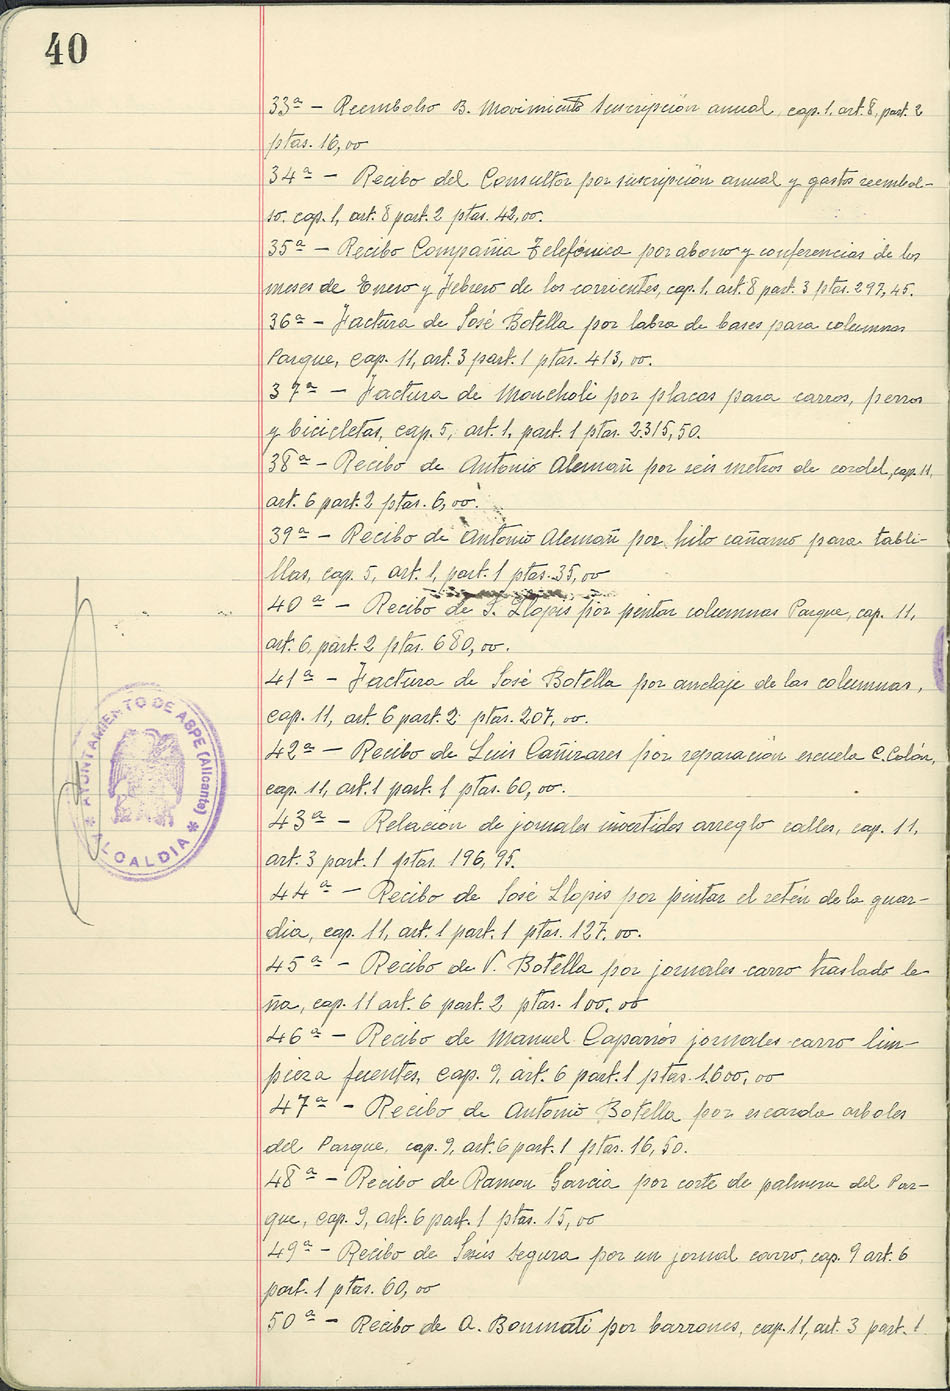 40
33ª - Reembolso B. Movimiento suscripción anual, cap. 1, art. 8, part. 2
ptas. 16,00
34ª - Recibo del Consultor por suscripción anual y gastos reembol-
so. cap. 1, art. 8 part. 2 ptas. 42,00.
35ª - Recibo Compañia Telefónica por abono y conferencias de los
meses de Enero y Febrero de los corrientes, cap. 1, art. 8 part. 3 ptas. 297,45.
36ª - Factura de José Botella por labra de bases para columnas
Parque, cap. 11, art. 3 part. 1 ptas. 413,00.
37ª - Factura de Moncholi por placas para carros, perros
y bicicletas, cap. 5, art. 1, part. 1 ptas. 2.315,50.
38ª - Recibo de Antonio Alemañ por seis metros de cordel, cap. 11,
art. 6 part. 2 ptas. 6,00.
39ª - Recibo de Antonio Alemañ por hilo cañamo para tabli-
llas, cap. 5, art. 1, part. 1 ptas. 35,00
40ª - Recibo de J. Llopis por pintar columnas Parque, cap. 11,
art. 6, part. 2 ptas. 680,00.
41ª - Factura de José Botella por anclaje de las columnas,
cap. 11, art. 6 part. 2 ptas. 207,00.
42ª - Recibo de Luis Cañizares por reparación escuela C. Colón,
cap. 11, art. 1 part. 1 ptas. 60,00.
43ª - Relación de jornales invertidos arreglo calles, cap. 11,
art. 3 part. 1 ptas. 196,95.
44ª - Recibo de José Llopis por pintar el retén de la guar-
dia, cap. 11, art. 1 part. 1 ptas. 127,00.
45ª - Recibo de V. Botella por jornales carro traslado le-
ña, cap. 11 art. 6 part. 2 ptas. 100,00
46ª - Recibo de Manuel Caparrós jornales carro lim-
pieza fuentes, cap. 9, art. 6 part. 1 ptas. 1.600,00
47ª - Recibo de Antonio Botella por escarda arboles
del Parque, cap. 9, art. 6 part. 1 ptas. 16,50.
48ª - Recibo de Ramon Garcia por corte de palmera del Par-
que, cap. 9, art. 6 part. 1 ptas. 15,00
49ª - Recibo de Jesús Segura por un jornal carro, cap. 9 art. 6
part. 1 ptas. 60,00
50ª - Recibo de A. Bonmati por barrones, cap. 11, art. 3 part. 1
AYUNTAMIENTO DE ASPE (Alicante)
* ALCALDIA *